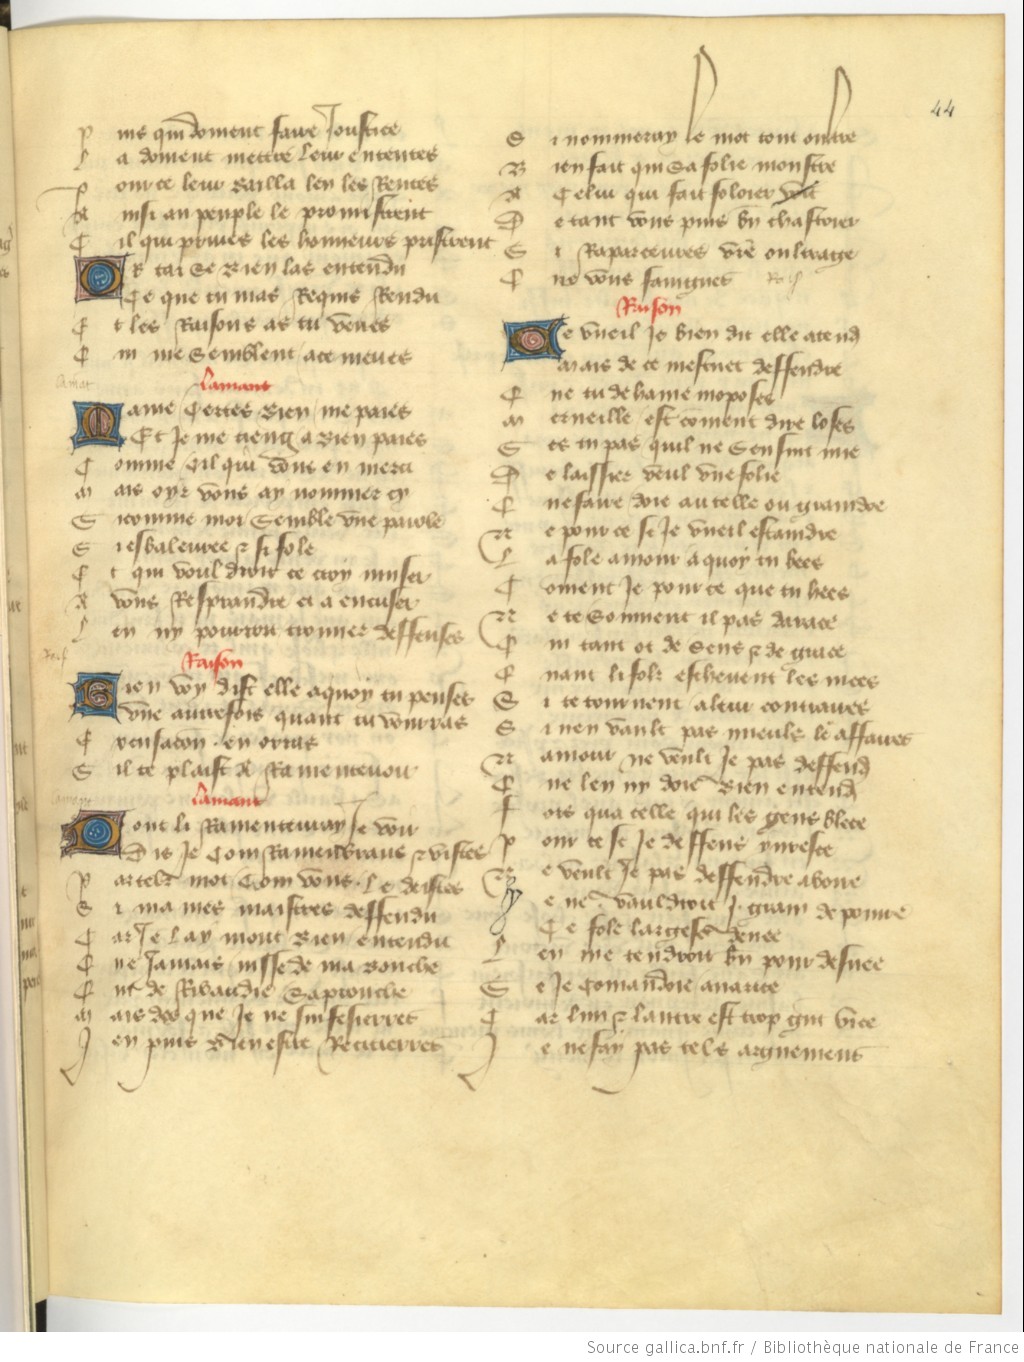 44
P uis quil doivent faire Justice
L a doivent mettre leur ententes
P our ce leur bailla len les Rentes
A insi au peuple le promistrent
C il qui primes les honneurs pristrent
O R tai se bien las entendu
Ce que tu mas Requis Rendu
E t les Raisons as tu veues
Q ui me semblent ace meues
Amat
Lamant
D ame Certes bien me paies
Et Je me tieng a bien paies
C omme Cil qui vous en merci
M ais oyr vous ay nommer cy
S icomme moi semble une parole
S i esbaleuree & si fole
Q t qui vouldroit ce croy muser
A vous Resprandre et a encuser
L en ny pourroit trouver deffenses
Rais
Raison
B ien voy dist elle aquoy tu penses
Une autrefois quant tu vourras
E xcusacon en orras
S il te plaist a Ramentevoir
Lamant
D ont li Ramentevray Je voir
Dis Je Com Ramenbraus & vistes
P ar tel mot Com vous le deistes
S i ma mes maistres deffendu
C ar Je lay mout bien entendu
Q ue Jamais nisse de ma bouche
Q ui de Ribaudie saprouche
M ais des que Je ne sui fesierres
J en puis bien estre Recitierres
S i nommeray le mot tout oultre
B ien fait qui sa folie monstre
A Celui qui fait foloier
D e tant vous puis bn chastoier
S i Raparcevres vre oultrage
Q no vous faingnes Rais
Raison
C e vueil Je bien dit elle atend
Mais de ce mesfuet deffendre
Q ue tu de haine moposes
M erveille est coment dire loses
S es tu pas quil ne sensuit mie
D e laissier veul une folie
Q ne faire doie autelle ou graindre
N e pour ce si Je vueil estaindre
L a fole amour aquoy tu bees
C oment Je pour ce que tu hees
N e te sovient il pas darace
Q ui tant ot de sens & de grace
Q uant li folz eschevent les mees
S i te tournent alur contraires
S i nen vault pas mieulx le affaires
N amour ne veuli Je pas deffend
Q ue len ny doie bien entend
F ors qua celle qui les gens blece
P our ce se Je deffens yvresce
N e veult Je pas deffendre aboire
e ne vauldroit J grain de poivre
Ce fole largesse denee
L en me tendroit bn pour desvee
S e Je Comandoie avarice
C ar lun & lautre est trop gnt vice
J e ne fay pas tels arguement
Source gallica.bnf.fr / Bibliothèque nationale de France